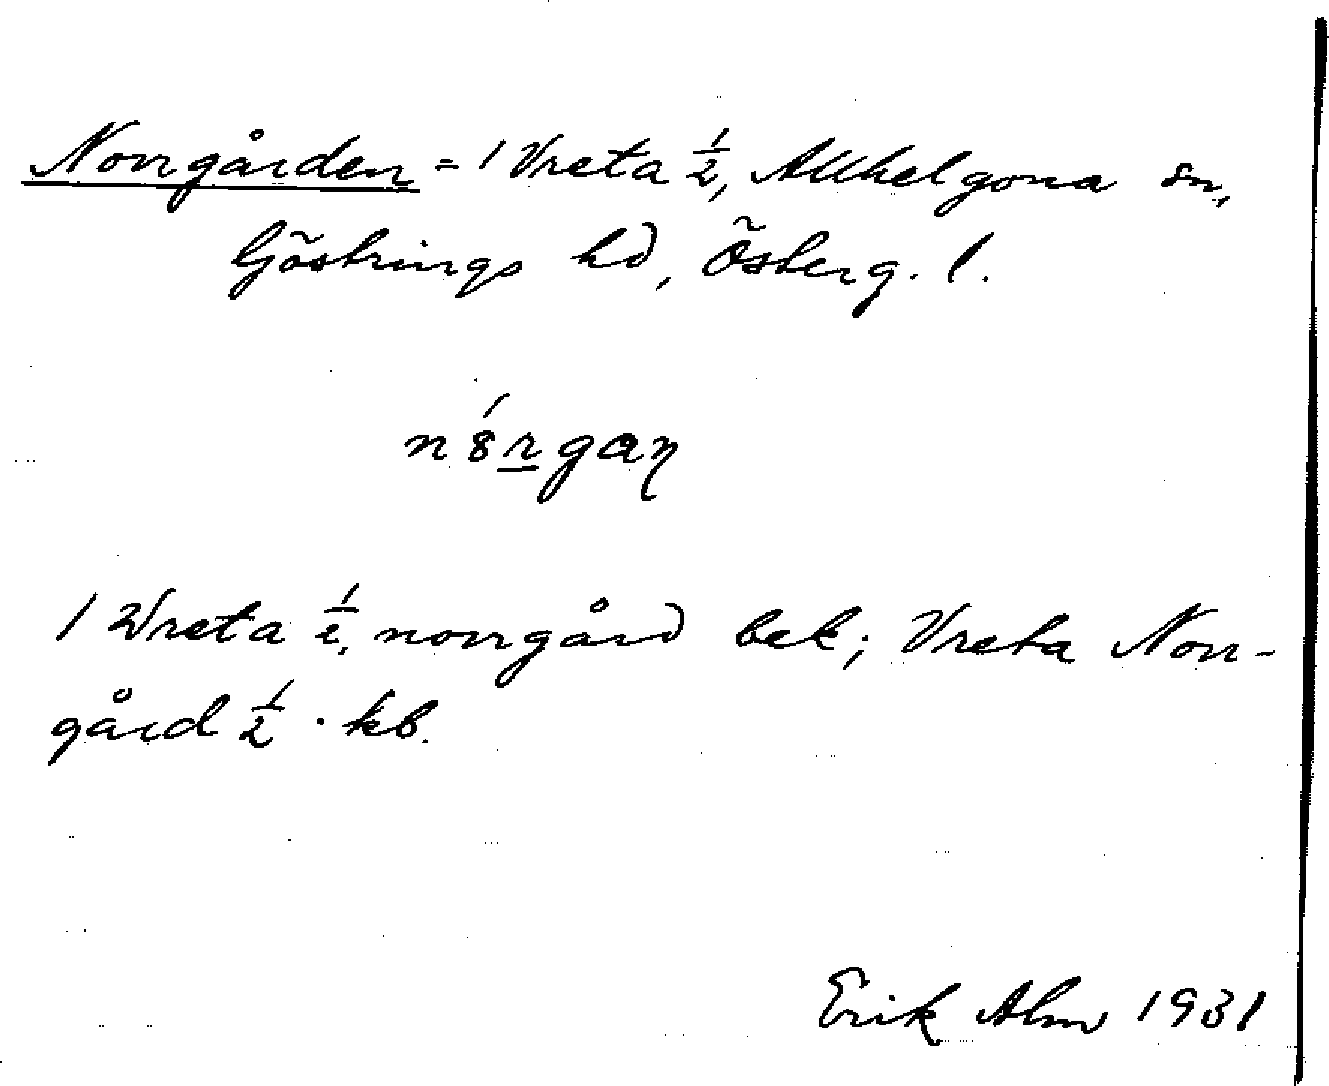 Norrgården = 1 Vreta 1/2, Allhelgona sn,
Göstrings hd, Österg. l.
1 Wreta 1/2, norrgård bek; Vreta Norr-
gård 1/2 · kb.
Erik Alm 1931